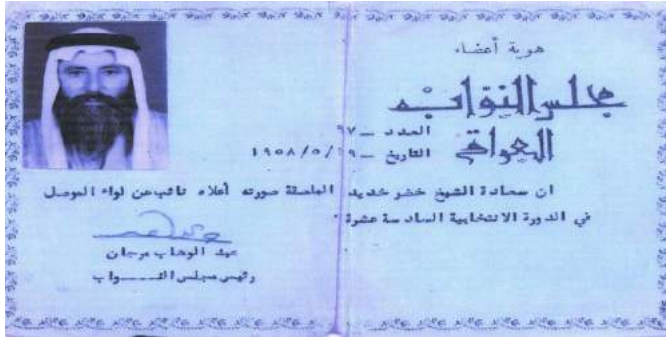 هوية أعضاء
مجلس النواب
العراقي
العدد - ٦٧
التاريخ - ١٩٥٨/٥/١٩
ان سعادة الشيخ خضر خديد الملصقة صورته أعلاه نائب عن لواء الموصل
في الدورة الانتخابية السادسة عشرة
عبد الوهاب مرجان
رئيس مجلس النـــواب